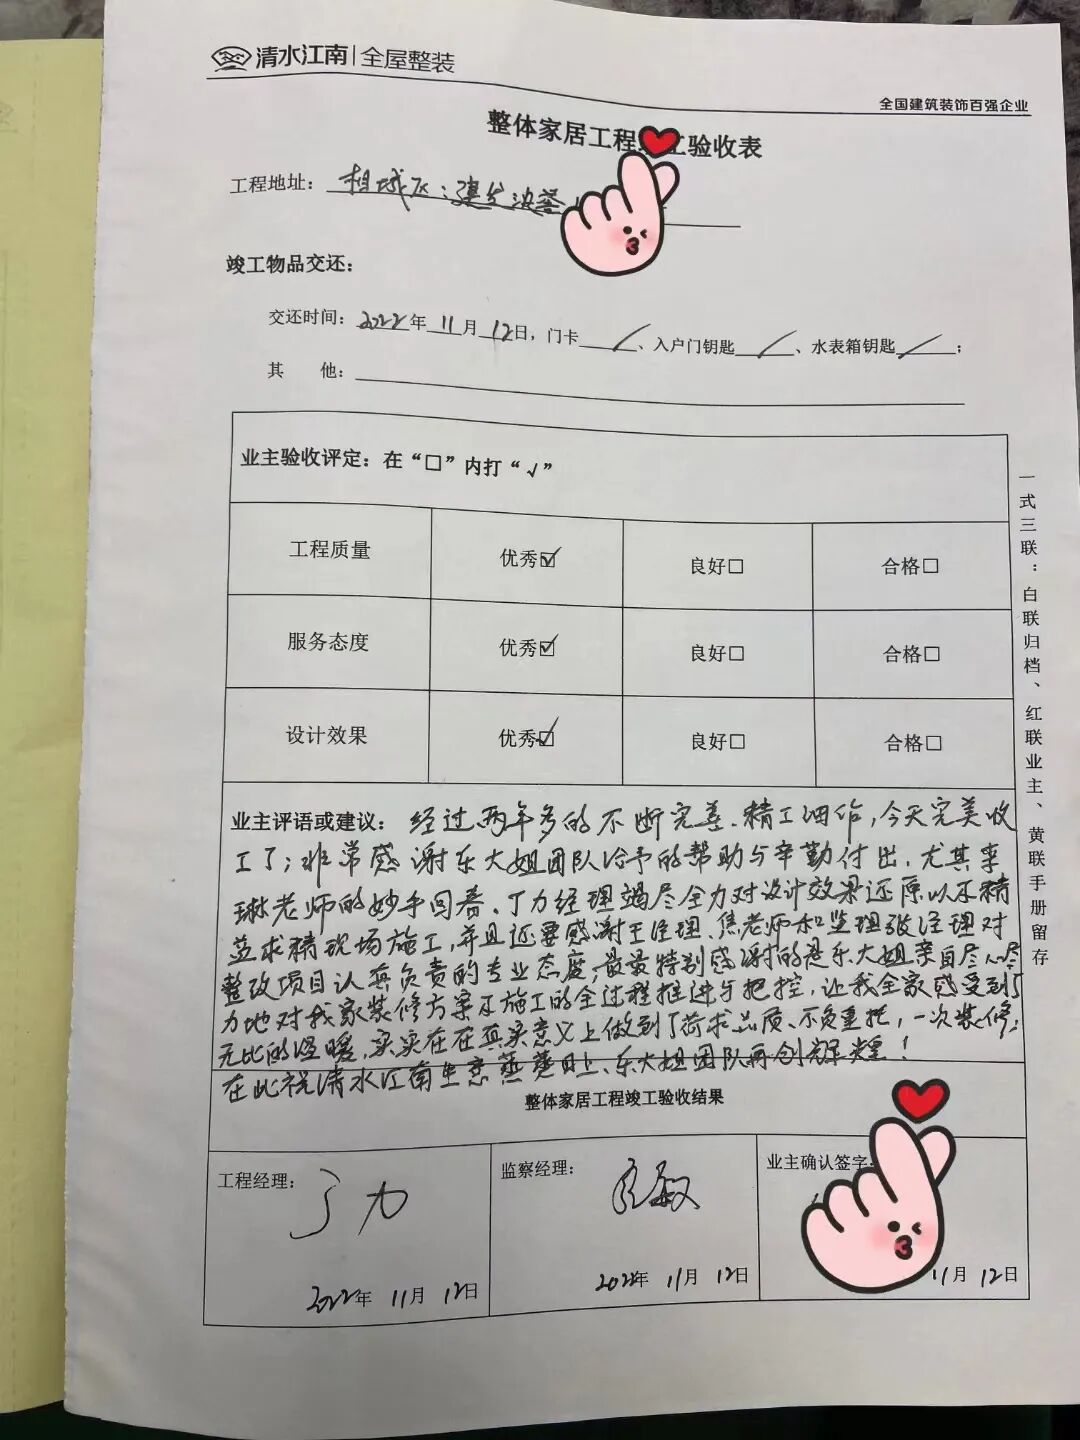 清水江南|全屋整装
全国建筑装饰百强企业
整体家居工程 工验收表
工程地址：相城区：建发泱誉
竣工物品交还：
交还时间：2022年11月12日，门卡/、入户门钥匙/、水表箱钥匙/；
其 他：
业主验收评定：在“□”内打“√”
工程质量 优秀☑ 良好□ 合格□
服务态度 优秀☑ 良好□ 合格□
设计效果 优秀☑ 良好□ 合格□
业主评语或建议：经过两年多的不断完善、精工细作，今天完美收
工了；非常感谢东大姐团队给予的帮助与辛勤付出，尤其李
琳老师的妙手回春、丁力经理竭尽全力对设计效果还原以及精
益求精现场施工，并且还要感谢王经理、焦老师和监理张经理对
整改项目认真负责的专业态度，最最特别感谢的是东大姐亲自尽心尽
力地对我家装修方案及施工的全过程推进与把控，让我全家感受到了
无比的温暖，实实在在真实意义上做到了苛求品质、不负重托，一次装修；
在此祝清水江南生意蒸蒸日上、东大姐团队再创辉煌！
整体家居工程竣工验收结果
工程经理：
丁力
2022年 11月 12日
监察经理：
2022年 11月 12日
业主确认签字：
11月 12日
一式三联：白联归档、红联业主、黄联手册留存